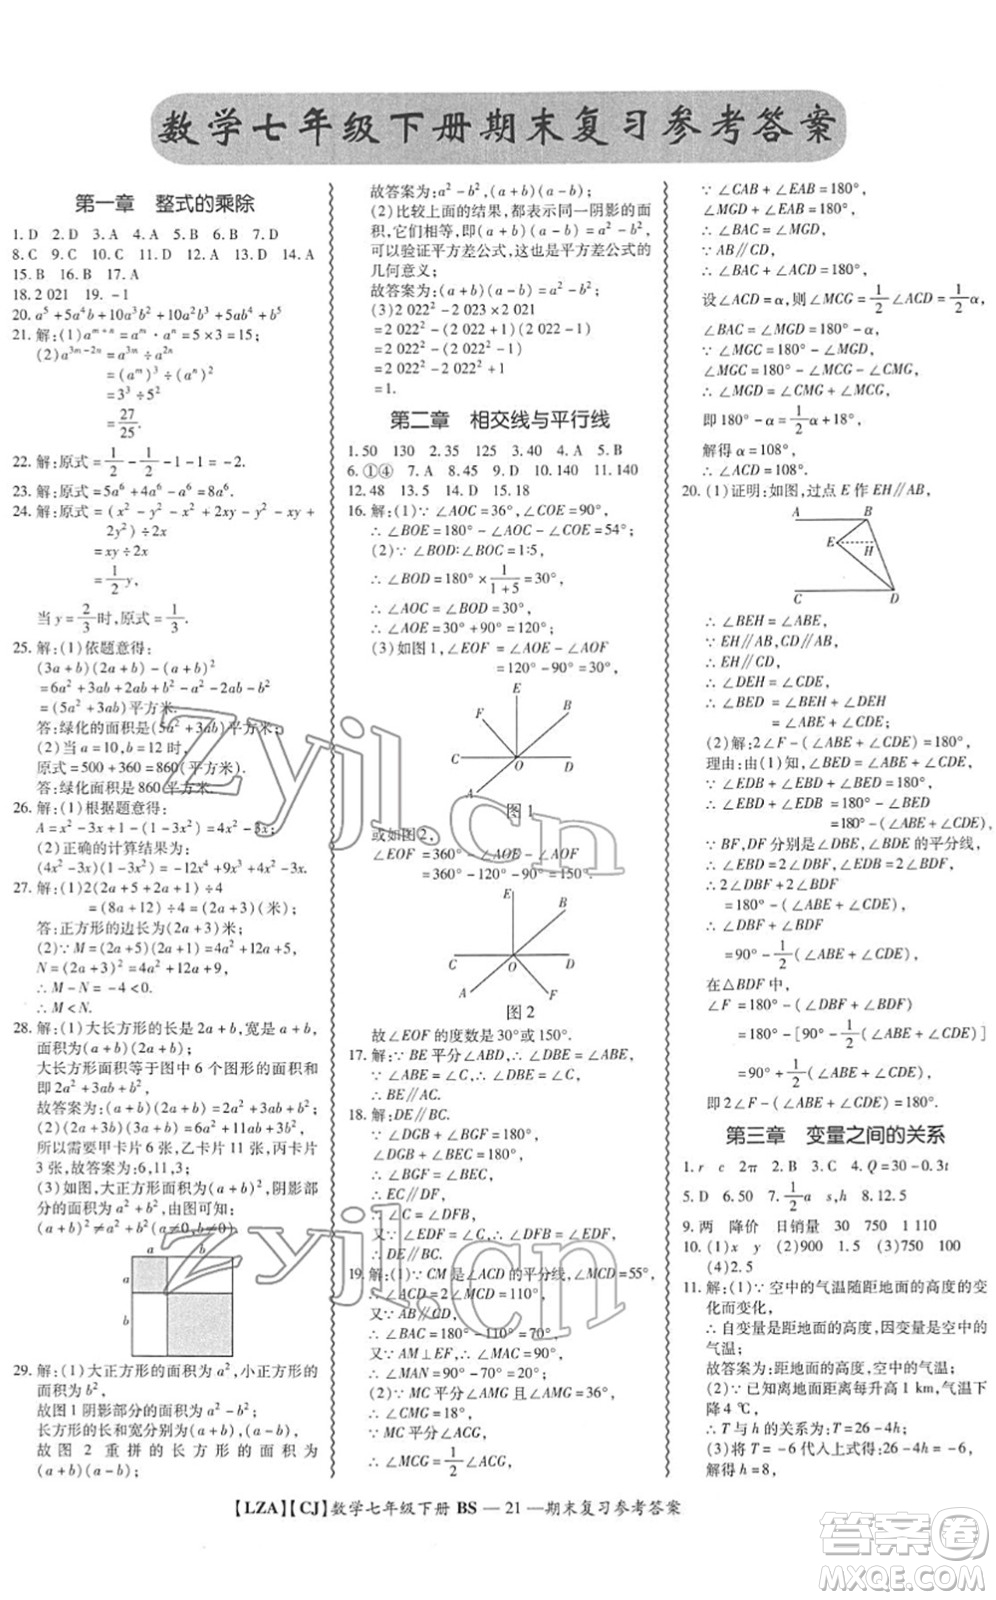 数学七年级下册期末复习参考答案
第一章 整式的乘除
1. D 2. D 3. A 4. A 5. B 6. B 7. D
8. C 9. C 10. C 11. D 12. D 13. D 14. A
15. B 16. B 17. A
18. 2 021 19. -1
20. a⁵+5a⁴b+10a³b²+10a²b³+5ab⁴+b⁵
21. 解:(1)a^{m+n}=a^m·a^n=5×3=15;
(2)a^{3m-2n}=a^{3m}÷a^{2n}
=(a^m)³÷(a^n)²
=3³÷5²
=27/25.
22. 解:原式=1/2-1/2-1-1=-2.
23. 解:原式=5a⁶+4a⁶-a⁶=8a⁶.
24. 解:原式=(x²-y²-x²+2xy-y²-xy+
2y²)÷2x
=xy÷2x
=1/2y,
当y=2/3时,原式=1/3.
25. 解:(1)依题意得:
(3a+b)(2a+b)-(a+b)²
=6a²+3ab+2ab+b²-a²-2ab-b²
=(5a²+3ab)平方米.
答:绿化的面积是(5a²+3ab)平方米;
(2)当a=10,b=12时,
原式=500+360=860(平方米).
答:绿化面积是860平方米.
26. 解:(1)根据题意得:
A=x²-3x+1-(-3x²)=4x²-3x+1;
(2)正确的计算结果为:
(4x²-3x+1)(-3x²)=-12x⁴+9x³-3x².
27. 解:(1)2(2a+5+2a+1)÷4
=(8a+12)÷4=(2a+3)(米);
答:正方形的边长为(2a+3)米;
(2)∵M=(2a+5)(2a+1)=4a²+12a+5,
N=(2a+3)²=4a²+12a+9,
∴M-N=-4<0.
∴M<N.
28. 解:(1)大长方形的长是2a+b,宽是a+b,
面积为(a+b)(2a+b),
大长方形面积等于图中6个图形的面积和
即2a²+3ab+b²,
故答案为:(a+b)(2a+b)=2a²+3ab+b²;
(2)(2a+3b)(3a+b)=6a²+11ab+3b²,
所以需要甲卡片6张,乙卡片11张,丙卡片
3张.故答案为:6,11,3;
(3)如图,大正方形的面积为(a+b)²,阴影部
分的面积为a²+b²,由图可知:
(a+b)²≠a²+b²(a≠0,b≠0)
a b
a
b
29. 解:(1)大正方形的面积为a²,小正方形的
面积为b²,
故图1阴影部分的面积为a²-b²;
长方形的长和宽分别为(a+b)、(a-b),
故图2重拼的长方形的面积为
(a+b)(a-b);
故答案为:a²-b²,(a+b)(a-b);
(2)比较上面的结果,都表示同一阴影的面
积,它们相等,即(a+b)(a-b)=a²-b²,
可以验证平方差公式,这也是平方差公式的
几何意义;
故答案为:(a+b)(a-b)=a²-b²;
(3)2 022²-2 023×2 021
=2 022²-(2 022+1)(2 022-1)
=2 022²-(2 022²-1)
=2 022²-2 022²+1
=1.
第二章 相交线与平行线
1. 50 130 2. 35 125 3. 40 4. A 5. B
6. ①④ 7. A 8. 45 9. D 10. 140 11. 140
12. 48 13. 5 14. D 15. 18
16. 解:(1)∵∠AOC=36°,∠COE=90°,
∴∠BOE=180°-∠AOC-∠COE=54°;
(2)∵∠BOD:∠BOC=1:5,
∴∠BOD=180°×1/(1+5)=30°,
∴∠AOC=30°,
∴∠AOE=30°+90°=120°;
(3)如图1,∠EOF=∠AOE-∠AOF
=120°-90°=30°,
E B F C O D A
图1
或如图2,
∠EOF=360°-∠AOE-∠AOF
=360°-120°-90°=150°.
E B C O D A F
图2
故∠EOF的度数是30°或150°.
17. 解:∵BE平分∠ABD,∴∠ABE=∠DBE,
∵∠ABE=∠C,∴∠DBE=∠C,
∴BE∥AC.
18. 解:DE∥BC.
∵∠DGB+∠BGF=180°,
∠DGB+∠BFG=180°,
∴∠BGF=∠BFG,
∴AB∥EF,
∴∠ADE=∠DEF,
又∵∠EDF=∠C,
∴∠EDF=∠C,
∴DE∥BC.
19. 解:(1)∵CM是∠ACD的平分线,∠MCD=55°,
∴∠ACD=2∠MCD=110°,
又∵AB∥CD,
∴∠BAC=180°-110°=70°,
又∵AM⊥EF,
∴∠MAN=90°-70°=20°;
(2)∵MC平分∠AMG且∠AMG=36°,
∴∠AMC=∠CMG=18°,
∵CM平分∠ACG,
∴∠MCG=1/2∠ACG,
∵∠CAB+∠EAB=180°,
∠MGD+∠EAB=180°,
∴∠BAC=∠MGD,
∵AB∥CD,
∴∠BAC+∠ACD=180°,
设∠ACD=α,则∠MCG=1/2∠ACD=1/2α,
∠BAC=∠MGD=180°-α
∵∠MGC=180°-∠MGD,
∠MGC=180°-∠MCG-∠CMG
∴∠MGD=∠CMG+∠MCG,
即180°-α=1/2α+18°,
解得α=108°.
∴∠ACD=108°.
20. (1)证明:如图,过点E作EH∥AB,
A B E H C D
∴∠BEH=∠ABE,
∵EH∥AB,CD∥AB,
∴EH∥CD,
∴∠DEH=∠CDE,
∴∠BED=∠BEH+∠DEH
=∠ABE+∠CDE;
(2)解:2∠F-(∠ABE+∠CDE)=180°,
理由:由(1)知,∠BED=∠ABE+∠CDE,
∵∠EDB+∠EBD+∠BED=180°,
∴∠EBD+∠EDB=180°-∠BED
=180°-(∠ABE+∠CDE),
∵BF,DF分别是∠DBE,∠BDE的平分线,
∴∠EBD=2∠DBF,∠EDB=2∠BDF,
∴2∠DBF+2∠BDF
=180°-(∠ABE+∠CDE),
∴∠DBF+∠BDF
=90°-1/2(∠ABE+∠CDE),
在△BDF中,
∠F=180°-(∠DBF+∠BDF)
=180°-[90°-1/2(∠ABE+∠CDE)]
=90°+1/2(∠ABE+∠CDE),
即2∠F-(∠ABE+∠CDE)=180°.
第三章 变量之间的关系
1. r c 2π 2. B 3. C 4. Q=30-0.3t
5. D 6. 50 7. 1/2a s,h 8. 12.5
9. 两 降价 日销量 30 750 1 110
10. (1)x y (2)900 1.5 (3)750 100
(4)2.5
11. 解:(1)∵空中的气温随距地面的高度的变
化而变化,
∴自变量是距地面的高度,因变量是空中的
气温;
故答案为:距地面的高度,空中的气温;
(2)∵已知距地面每升高1 km,气温下
降4 ℃,
∴T与h的关系为:T=26-4h;
(3)将T=-6代入上式得:26-4h=-6,
解得h=8,
【LZA】【CJ】数学七年级下册 BS — 21 —期末复习参考答案
zyjl.cn
zyjl.cn
答案圈
MXQE.COM